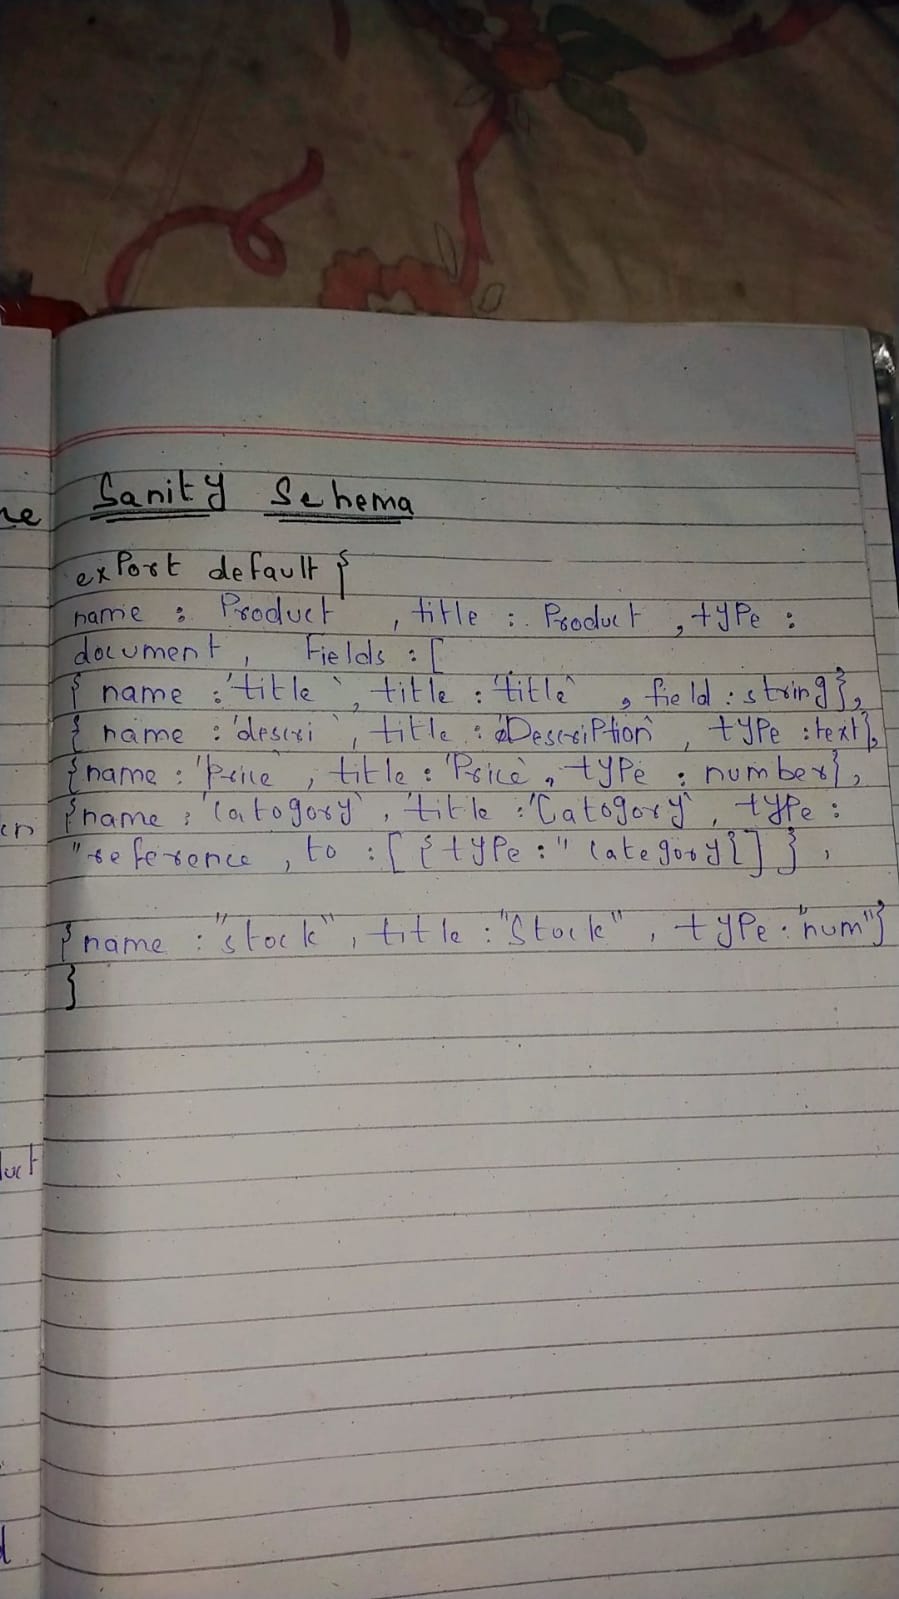 Sanity Schema
ne
export default {
name : Product , title : Product , type :
document , Fields : [
{ name : 'title' , title : 'title' , field : string},
{ name : 'descri' , title : 'Description' , type : text},
{name : 'Price' , title : 'Price' , type : number},
en
{name : 'Catogory' , 'title : 'Catogory' , type :
"reference , to : [ { type : " Category{] } ,
{ name : "stock" , title : "Stock" , type : "num"}
}
duct
d